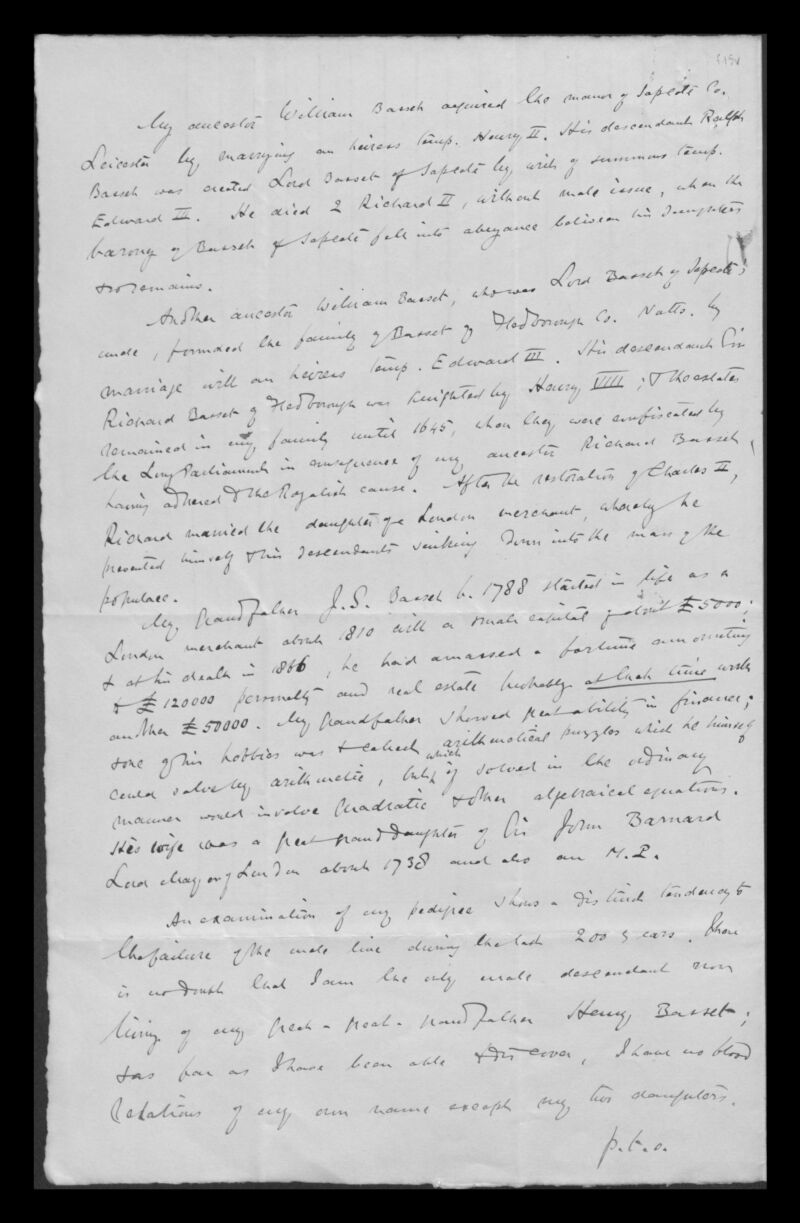 My ancestor William Basset acquired the manor of Sapcote Co.
Leicester by marrying an heiress temp. Henry II. His descendant Ralph
Basset was created Lord Basset of Sapcote by writ of summons temp.
Edward III. He died 2 Richard II, without male issue, when the
barony of Basset of Sapcote fell into abeyance between his daughters
& so remains.
Another ancestor William Basset, who was Lord Basset of Sapcote's
uncle, founded the family of Basset of Fledborough Co. Notts. by
marriage with an heiress temp. Edward III. His descendant Sir
Richard Basset of Fledborough was knighted by Henry VIII; & the estates
remained in my family until 1645, when they were confiscated by
the Long Parliament in consequence of my ancestor Richard Basset
having adhered to the Royalist cause. After the restoration of Charles II,
Richard married the daughter of a London merchant, whereby he
prevented himself & his descendants sinking down into the mass of the
populace.
My Grandfather J.S. Basset b. 1788 started in life as a
London merchant about 1810 with a small capital of about £5000;
& at his death in 1866, he had amassed a fortune amounting
to £120000 personalty and real estate probably at that time worth
another £50000. My grandfather showed great ability in finance;
& one of his hobbies was to collect arithmetical puzzles which he himself
could solve by arithmetic, but which if solved in the ordinary
manner would involve Quadratic & other algebraical equations.
His wife was a great grand daughter of Sir John Barnard
Lord Mayor of London about 1738 and also an M.P.
An examination of my pedigree shows a distinct tendency to
the failure of the male line during the last 200 years. There
is no doubt that I am the only male descendant now
living of my great-great-grandfather Henry Basset;
& as far as I have been able to discover, I have no blood
relations of my own name except my two daughters.
p.t.o.